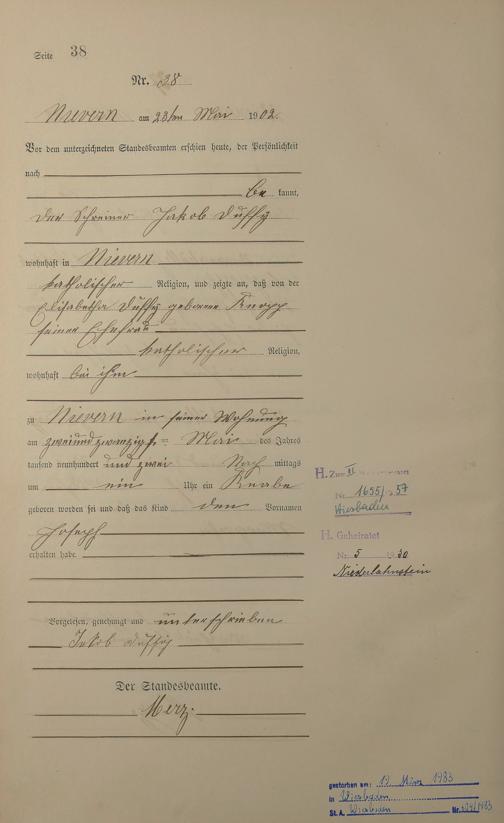 Seite 38
Nr. 38
Nievern am 23ten Mai 1902.
Vor dem unterzeichneten Standesbeamten erschien heute, der Persönlichkeit
nach
be kannt,
der Schreiner Jakob Düssy
wohnhaft in Nievern
katholischer Religion, und zeigte an, daß von der
Elisabetha Düssy geborene Knopp
seiner Ehefrau
katholischer Religion,
wohnhaft bei ihm
zu Nievern in seiner Wohnung
am zweiundzwanzigs. Mai des Jahres
tausend neunhundert und zwei Nach mittags
um ein Uhr ein Knabe
geboren worden sei und daß das Kind den Vornamen
Joseph
erhalten habe
Vorgelesen, genehmigt und unterschrieben
Jakob Düssy
Der Standesbeamte.
Merz.
H. Zum II
Nr. 1655 57
Wiesbaden
H. Geheiratet
Nr. 5 1930
Niederlahnstein
gestorben am: 19. März 1983
in Wiesbaden
St. A. Wiesbaden Nr. /1983